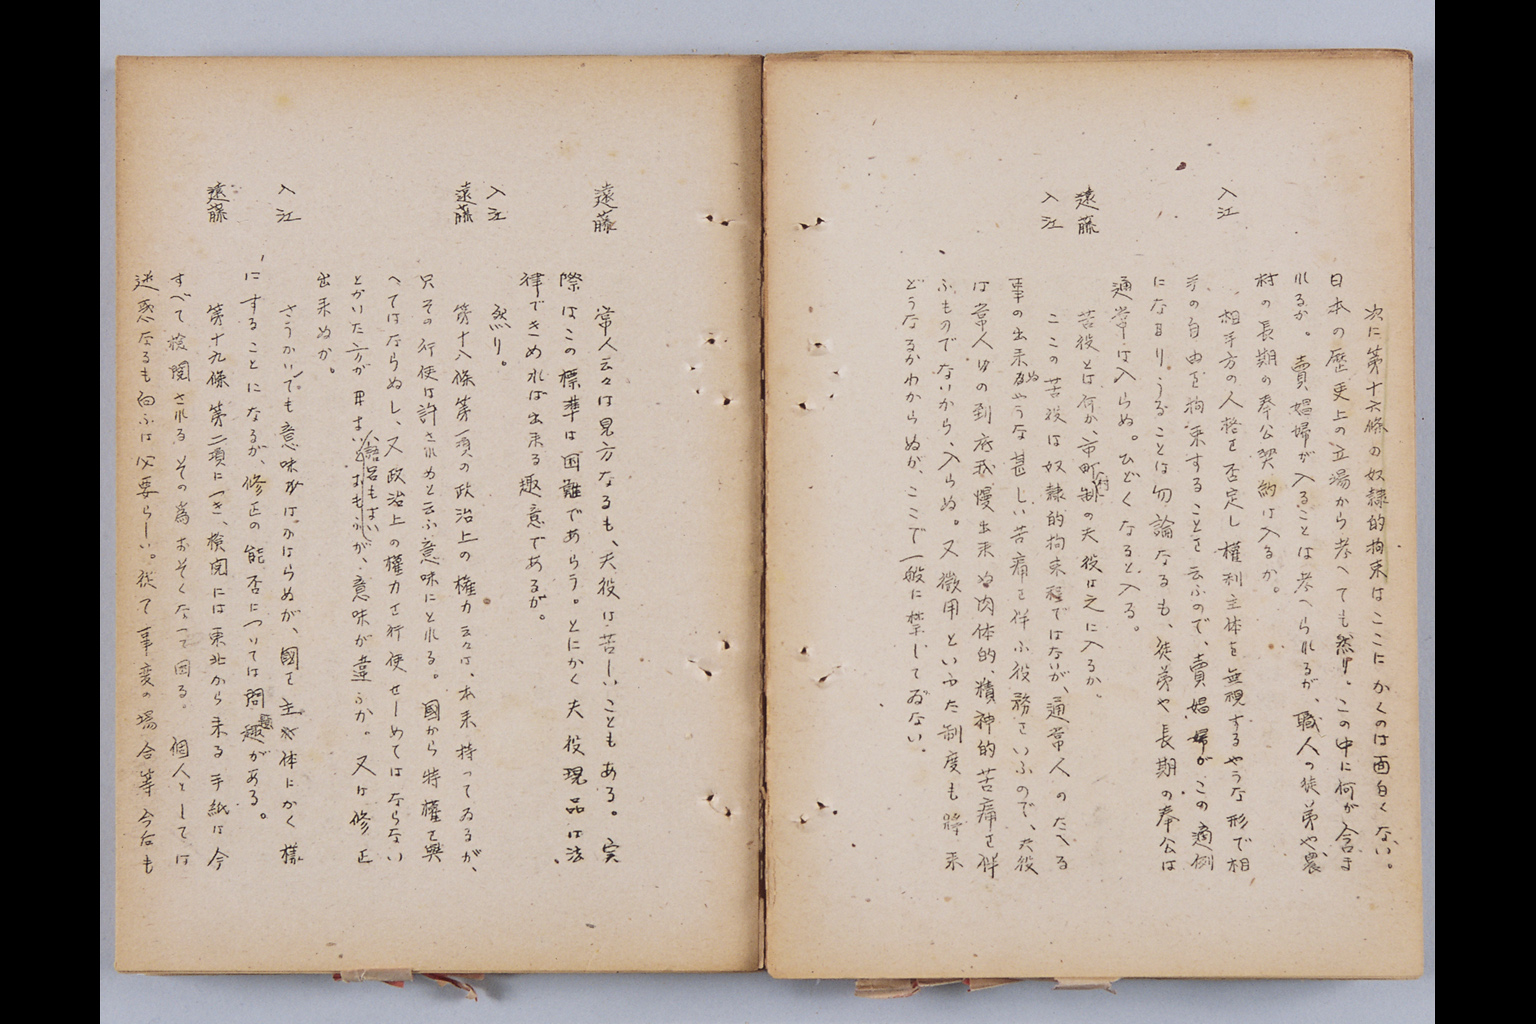 次に第十六條の奴隷的拘束はここにかくのは面白くない。
日本の歴史上の立場から考へても然り。この中に何が含ま
れるか。賣娼婦が入ることは考へられるが、職人の徒弟や、農
村の長期の奉公契約は入るか。
入江 相手方の人格を否定し權利主体を無視するやうな形で相
手の自由を拘束することを云ふので、賣娼婦がこの適例
になるり。うることは勿論なるも、徒弟や長期の奉公は
通常は入らぬ。ひどくなると入る。
遠藤 苦役とは何か、市町村制の夫役は之に入るか。
入江 ここの苦役は奴隷的拘束程ではないが、通常人のたへる
事の出来ぬやうな甚しい苦痛を伴ふ役務をいふので、夫役
は常人の到底我慢出来ぬ肉体的、精神的苦痛を伴
ふものでないから、入らぬ。又徴用といふた制度も将来
どうなるかわからぬが、ここで一般に禁じてゐない。
遠藤 常人云々は見方なるも、夫役は苦しいこともある。実
際はこの標準は困難であらう。とにかく夫役現品は法
律できめれば出来る趣意であるが。
入江 然り。
遠藤 第十八條第一項の政治上の権力云々は、本来持ってゐるが、
只その行使は許されぬと云ふ意味にとれる。國から特權を與
へてはならぬし、又政治上の權力を行使せしめてはならない
とかいた方が語呂もはいが、意味が違ふか。又は修正
出来ぬか。
入江 さうかいても意味がはかはらぬが、國を主体にかく様
にすることになるが、修正の能否については問題がある。
遠藤 第十九條第二項につき、検閲には東北から来る手紙は今
すべて検閲されるその爲おそくなって困る。個人としては
迷惑なるも向ふは必要らしい。従て事変の場合等今后も